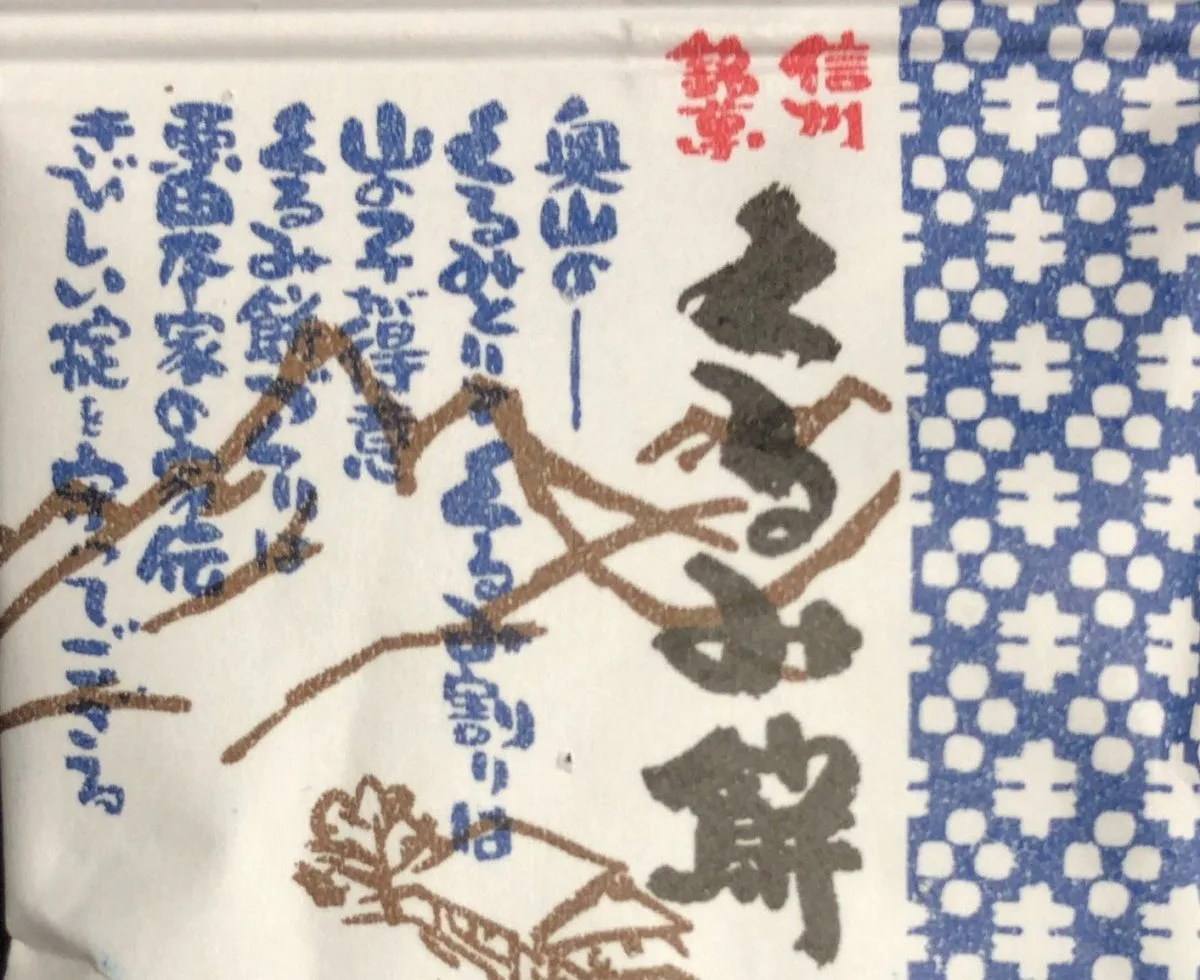 信州
銘菓
くるみ餅
奥山の―
くるみとりくるみ割りは
山の子が得意
くるみ餅づくりは
本家の
きびしい掟を守ってござる